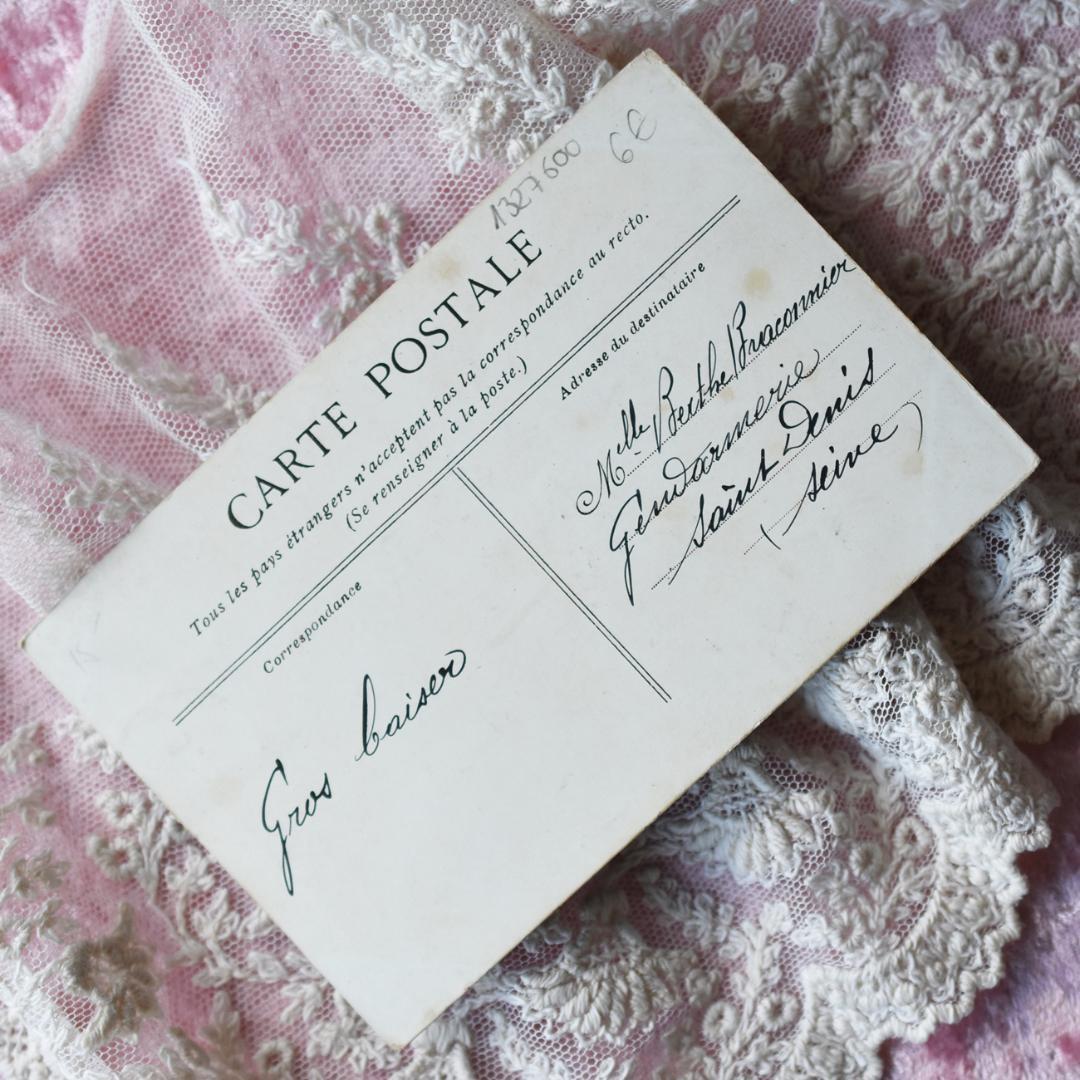 1327600 6€
CARTE POSTALE
Tous les pays étrangers n'acceptent pas la correspondance au recto.
(Se renseigner à la poste.)
Correspondance
Gros baiser
Adresse du destinataire
Melle Berthe Braconnier
Gendarmerie
Saint Denis
(Seine)